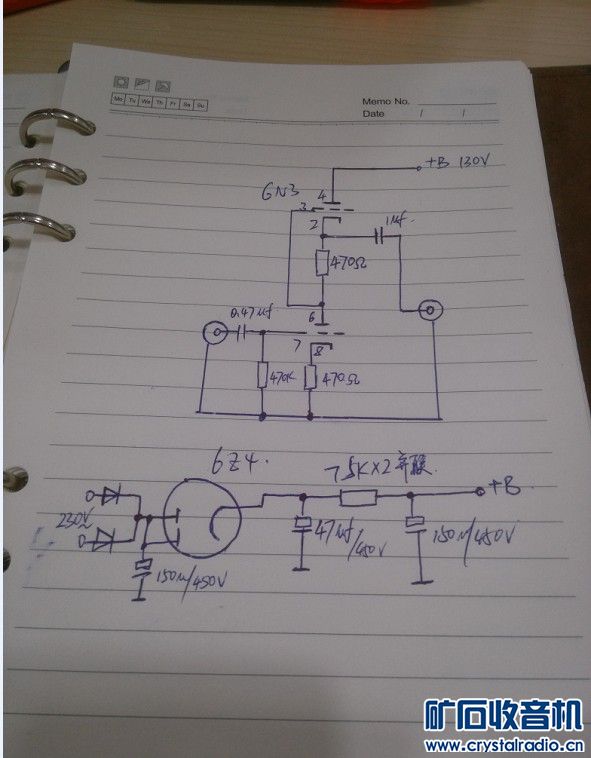 Memo No.
Mo Tu We Th Fr Sa Su
Date / /
+B 130V
6N3
4
3
2
1μf.
470Ω
6
0.47μf
7
8
470K
470Ω
6Z4.
75K×2并联.
+B.
230V
47μf/450V
150μ/450V
150μ/450V
矿石收音机
www.crystalradio.cn